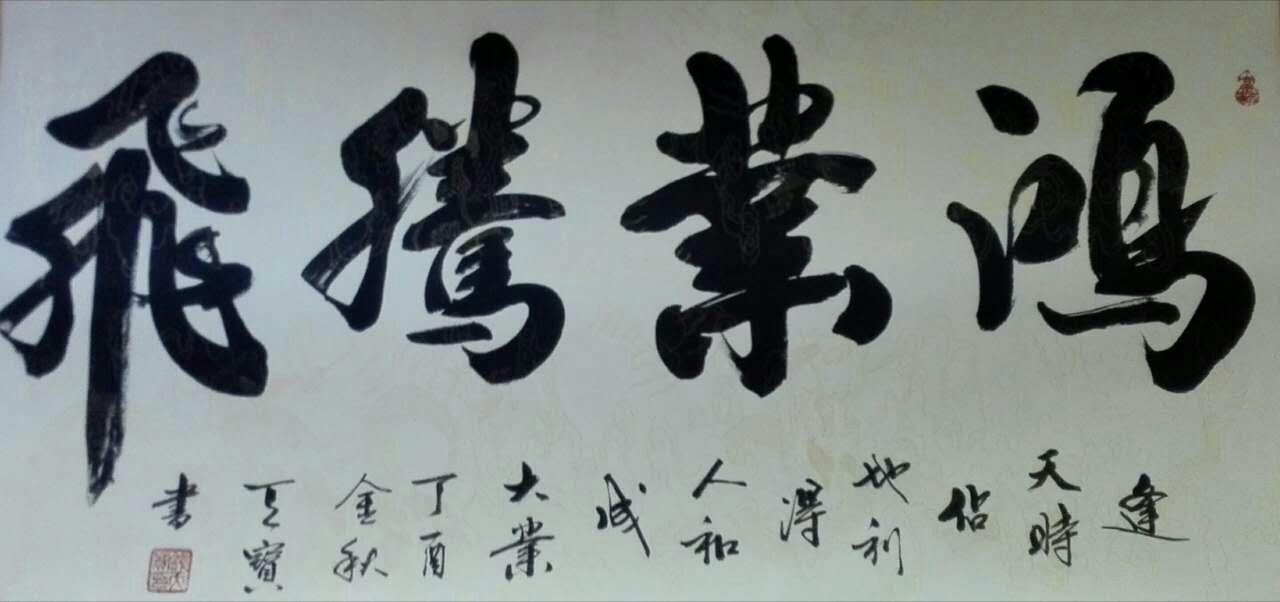 鴻業騰飛
逢
天時
佔
地利
得
人和
成
大業
丁酉
金秋
寶
書